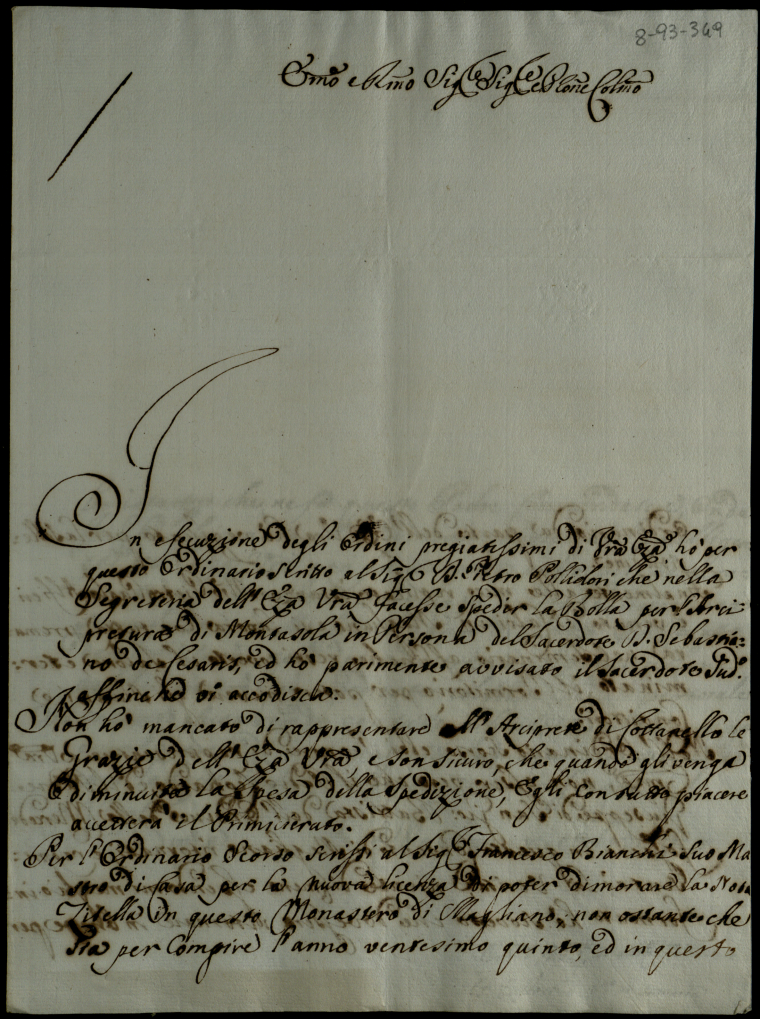 8-93-369
Emo e Rmo Sigre Sigre e Prone Colmo
In esecuzione degli Ordini pregiatissimi di Vra Eza hò per
questo Ordinario scritto al Sigr D. Pietro Pollidori che nella
Segreteria dell' Eza Vra facesse spedir la Bolla per l'Arci
pretura di Montasola in Persona del Sacerdote D. Sebastia=
no de Cesaris, ed hò parimente avvisato il Sacerdote sudo.
affinche vi accodisca.
Non hò mancato di rappresentare all' Arciprete di Cottanello le
Grazie dell' Eza Vra, e son sicuro, che quando gli venga
diminuita la spesa della spedizione, Egli con tutto piacere
accetterà il Primicierato.
Per l'Ordinario scorso scrissi al Sigr Francesco Bianchi Suo Ma
stro di Casa per la nuova licenza di poter dimorare la Nota
Zitella in questo Monastero di Magliano, non ostante che
sia per compire l'anno ventesimo quinto, ed in questo